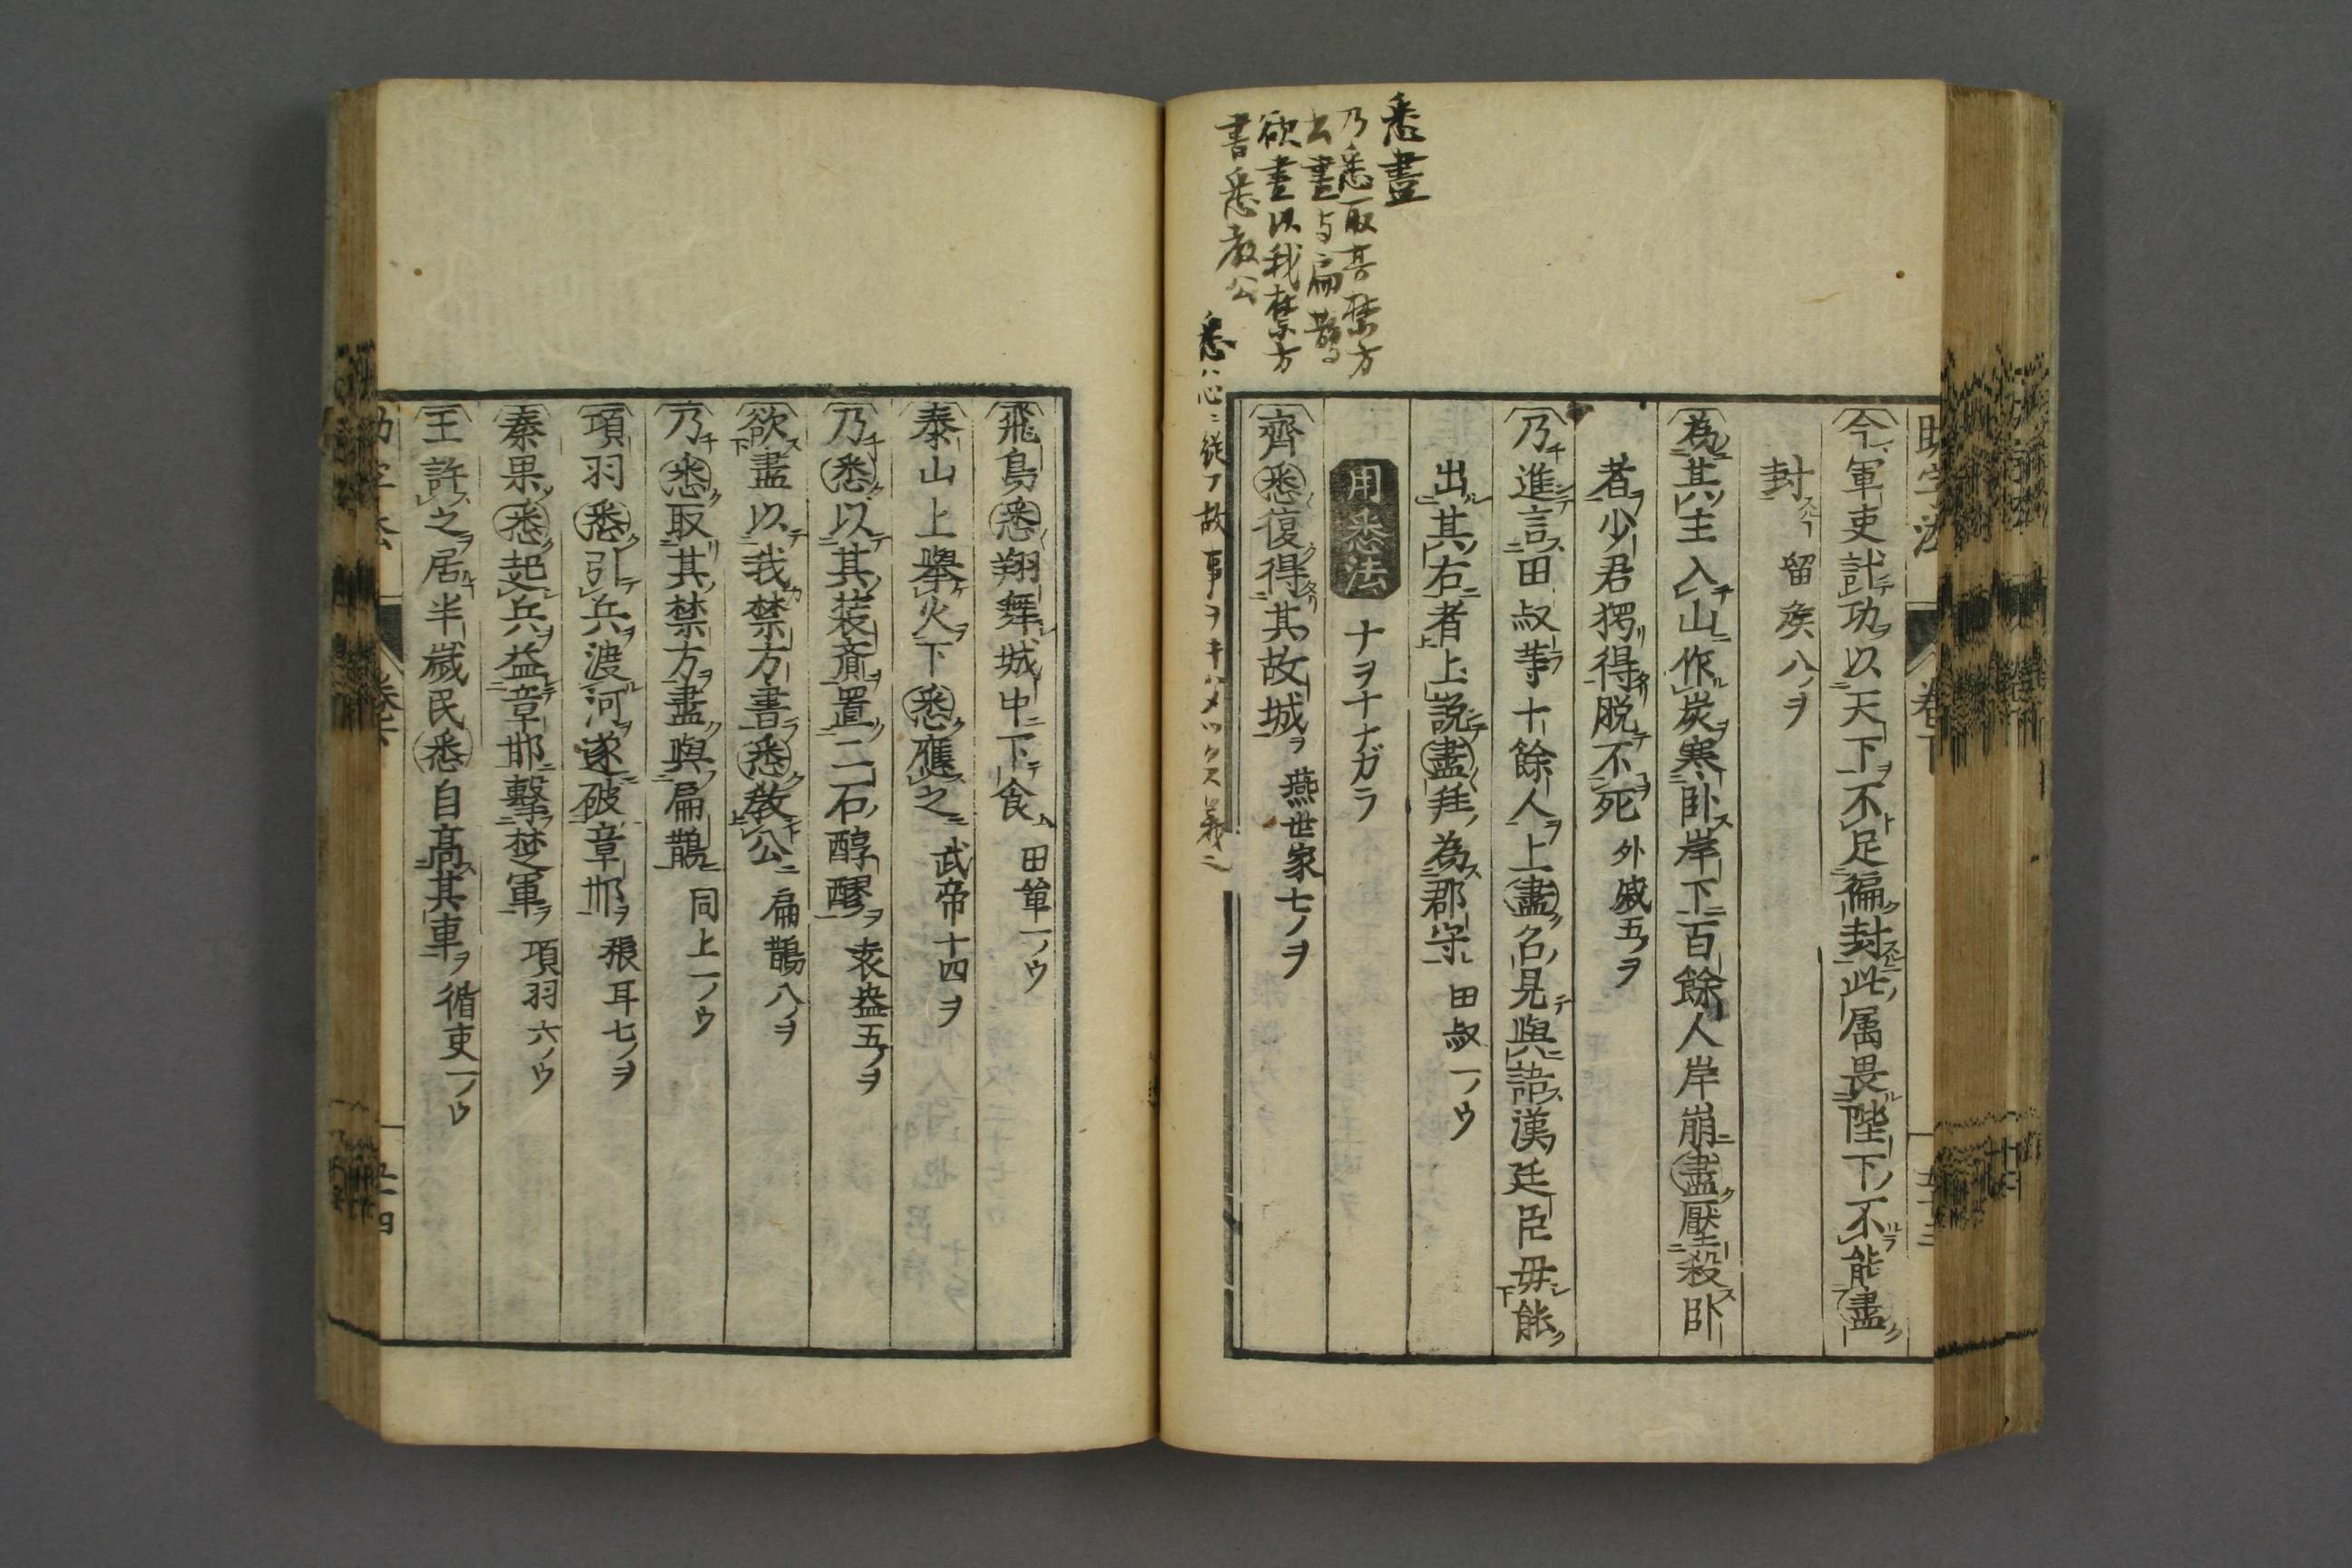 悉盡
乃悉取其禁方
書盡与扁鵲
欲盡以我禁方
書悉教公
悉ハ心ニ從フ故事ヲキハメツクス義也
今軍吏計功以天下不足徧封此属畏陛下不能盡
封 留矦八ノヲ
為其主入山作炭寒臥岸下百餘人岸崩盡壓殺臥
者少君獨得脱不死 外戚五ノヲ
乃進言田叔等十餘人上盡召見與語漢廷臣毋能
出其右者上説盡拜為郡守 田叔一ノウ
用悉法 ナヲナナガラ
齊悉復得其故城 燕世家七ノヲ
飛鳥悉翔舞城中下食 田單一ノウ
泰山上擧火下悉應之 武帝十四ヲ
乃悉以其装齎置二石醇醪 袁盎五ノヲ
欲盡以我禁方書悉教公 扁鵲八ノヲ
乃悉取其禁方盡與扁鵲 同上一ノウ
項羽悉引兵渡河遂破章邯 張耳七ノヲ
秦果悉起兵益章邯擊楚軍 項羽六ノウ
王許之居半歳民悉自高其車 循吏一ノウ